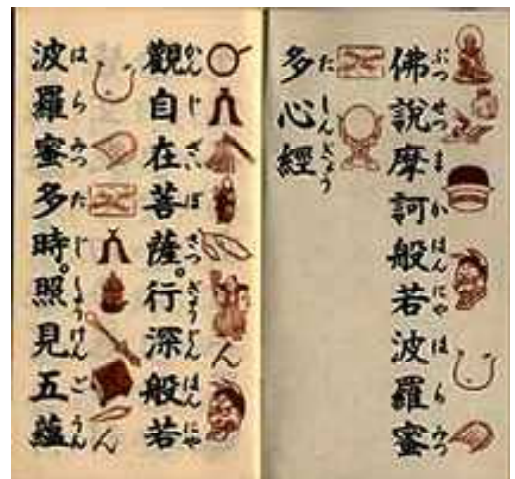 佛說摩訶般若波羅蜜
ぶつせつまかはんにやはらみつ
多心經
たしんぎょう
觀自在菩薩。行深般若
かんじざいぼさつぎょうじんはんにや
ん
波羅蜜多時。照見五蘊
はらみつたじしょうけんごうん
ん